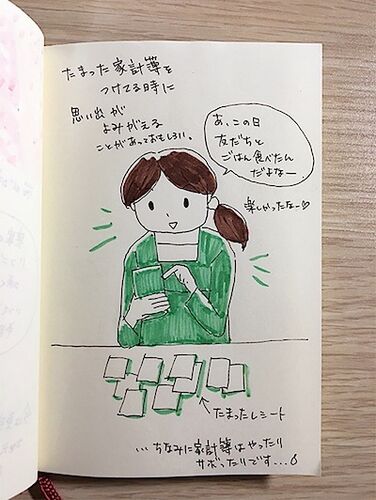 たまった家計簿を
つけてる時に
思い出が
よみがえる
ことがあっておもしろい。
あ、この日
友だちと
ごはん食べたん
だよなー
楽しかったなー♡
←たまったレシート
…ちなみに家計簿はやったり
サボったりです…💧